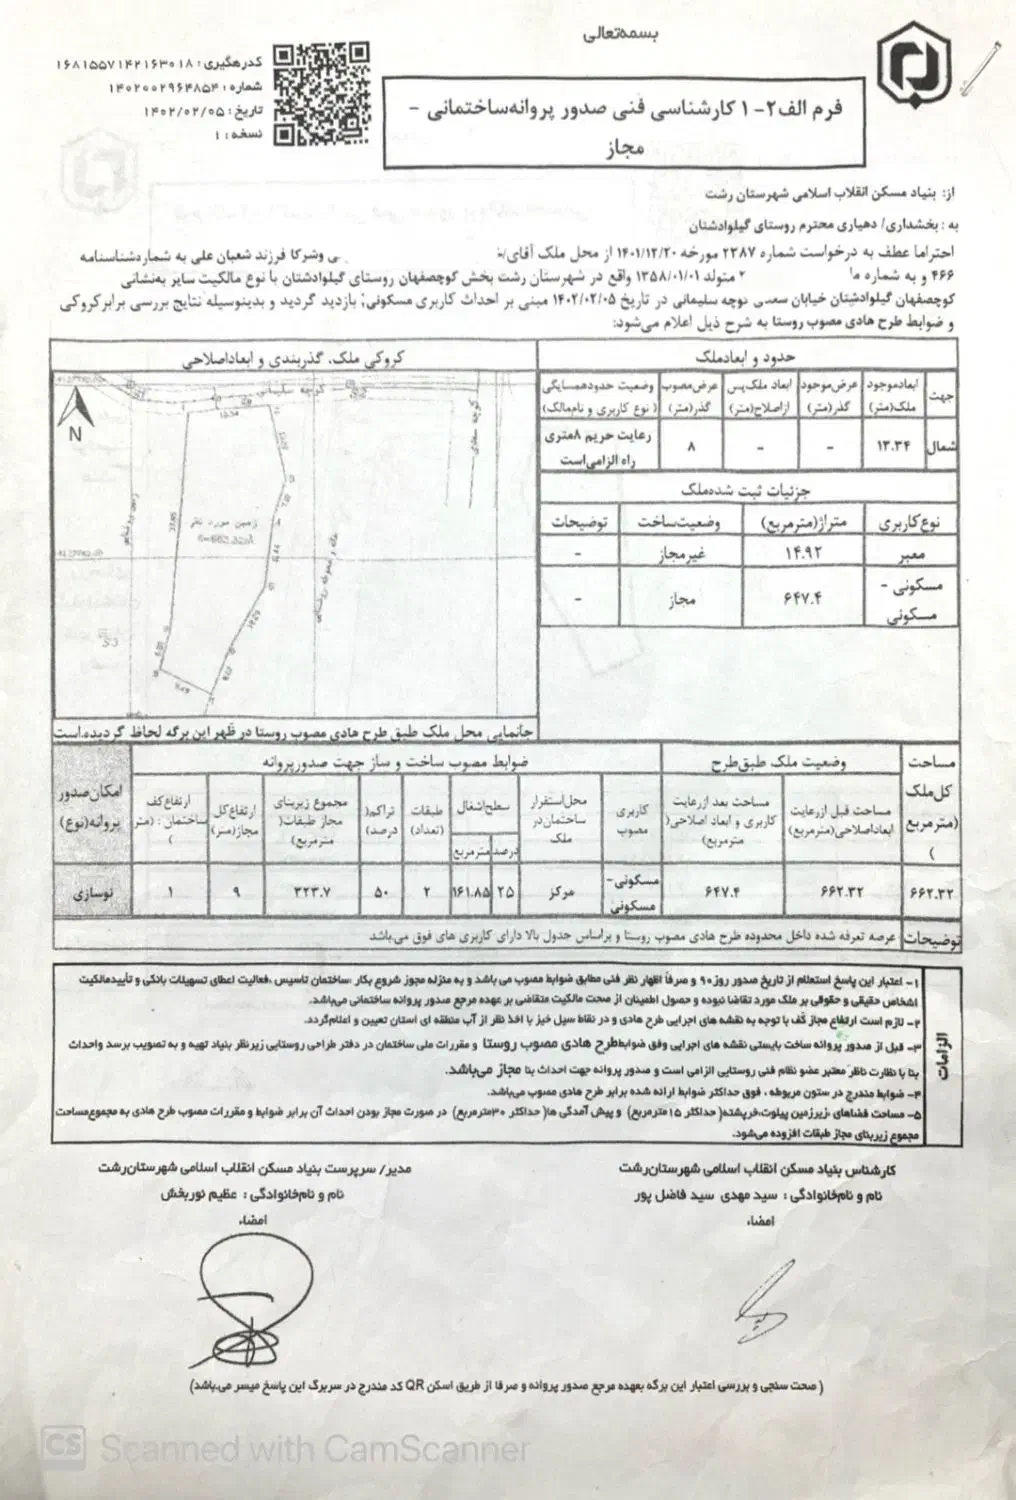 بسمه‌تعالی
کدرهگیری: ۱۶۸۱۵۵۷۱۴۲۱۶۳۰۱۸
شماره: ۱۴۰۲۰۰۲۹۶۴۸۵۴
تاریخ: ۱۴۰۲/۰۲/۰۵
نسخه: ۱
فرم الف۲-۱ کارشناسی فنی صدور پروانه‌ساختمانی -
مجاز
از: بنیاد مسکن انقلاب اسلامی شهرستان رشت
به: بخشداری/ دهیاری محترم روستای گیلوادشتان
احتراما عطف به درخواست شماره ۲۳۸۷ مورخه ۱۴۰۱/۱۲/۲۰ از محل ملک آقای/ وشرکا فرزند شعبان علی به شماره‌شناسنامه
۴۶۶ و به شماره متولد ۱۳۵۸/۰۱/۰۱ واقع در شهرستان رشت بخش کوچصفهان روستای گیلوادشتان با نوع مالکیت سایر به‌نشانی
کوچصفهان گیلوادشتان خیابان سعدی کوچه سلیمانی در تاریخ ۱۴۰۲/۰۲/۰۵ مبنی بر احداث کاربری مسکونی؛ بازدید گردید و بدینوسیله نتایج بررسی برابرکروکی
و ضوابط طرح هادی مصوب روستا به شرح ذیل اعلام می‌شود:
حدود و ابعادملک
جهت
ابعادموجود ملک(متر)
عرض‌موجود گذر(متر)
ابعاد ملک‌پس ازاصلاح(متر)
عرض‌مصوب گذر(متر)
وضعیت حدودهمسایگی ( نوع کاربری و نام‌مالک)
شمال
۱۳.۳۴
-
-
۸
رعایت حریم ۸متری راه الزامی‌است
جزئیات ثبت شده‌ملک
نوع‌کاربری
متراژ(مترمربع)
وضعیت‌ساخت
توضیحات
معبر
۱۴.۹۲
غیرمجاز
-
مسکونی - مسکونی
۶۴۷.۴
مجاز
-
کروکی ملک، گذربندی و ابعاداصلاحی
کوچه سلیمانی
کوچه سعدی
زمین مورد نظر
N
جانمایی محل ملک طبق طرح هادی مصوب روستا در ظهر این برگه لحاظ گردیده‌است
مساحت کل‌ملک (مترمربع )
وضعیت ملک طبق‌طرح
ضوابط مصوب ساخت و ساز جهت صدورپروانه
امکان‌صدور پروانه(نوع)
مساحت قبل ازرعایت ابعاداصلاحی(مترمربع)
مساحت بعد ازرعایت کاربری و ابعاد اصلاحی( مترمربع)
کاربری مصوب
محل‌استقرار ساختمان‌در ملک
سطح‌اشغال
درصد
مترمربع
طبقات (تعداد)
تراکم( درصد)
مجموع زیربنای مجاز طبقات( مترمربع)
ارتفاع‌کل مجاز(متر)
ارتفاع‌کف ساختمان: (متر )
۶۶۲.۳۲
۶۶۲.۳۲
۶۴۷.۴
مسکونی- مسکونی
مرکز
۲۵
۱۶۱.۸۵
۲
۵۰
۳۲۳.۷
۹
۱
نوسازی
توضیحات
عرصه تعرفه شده داخل محدوده طرح هادی مصوب روستا و براساس جدول بالا دارای کاربری های فوق می‌باشد
الزامات
۱- اعتبار این پاسخ استعلام از تاریخ صدور ۹۰ روز و صرفاً اظهار نظر فنی مطابق ضوابط مصوب می باشد و به منزله مجوز شروع بکار ،ساختمان تاسیس ،فعالیت اعطای تسهیلات بانکی و تأییدمالکیت
اشخاص حقیقی و حقوقی بر ملک مورد تقاضا نبوده و حصول اطمینان از صحت مالکیت متقاضی بر عهده مرجع صدور پروانه ساختمانی می‌باشد.
۲- لازم است ارتفاع مجاز کف با توجه به نقشه های اجرایی طرح هادی و در نقاط سیل خیز با اخذ نظر از آب منطقه ای استان تعیین و اعلام‌گردد.
۳- قبل از صدور پروانه ساخت بایستی نقشه های اجرایی وفق ضوابط‌طرح هادی مصوب روستا و مقررات ملی ساختمان در دفتر طراحی روستایی زیرنظر بنیاد تهیه و به تصویب برسد واحداث
بنا با نظارت ناظر معتبر عضو نظام فنی روستایی الزامی است و صدور پروانه جهت احداث بنا مجاز می‌باشد.
۴- ضوابط مندرج در ستون مربوطه ، فوق حداکثر ضوابط ارائه شده برابر طرح هادی مصوب می‌باشد.
۵- مساحت فضاهای ،زیرزمین پیلوت،خرپشته( حداکثر ۱۵ مترمربع) و پیش آمدگی ها( حداکثر ۳۰مترمربع) در صورت مجاز بودن احداث آن برابر ضوابط و مقررات مصوب طرح هادی به مجموع‌مساحت
مجموع زیربنای مجاز طبقات افزوده می‌شود.
کارشناس بنیاد مسکن انقلاب اسلامی شهرستان‌رشت
نام و نام‌خانوادگی : سید مهدی سید فاضل پور
امضاء
مدیر/ سرپرست بنیاد مسکن انقلاب اسلامی شهرستان‌رشت
نام و نام‌خانوادگی : عظیم نوربخش
امضاء
( صحت سنجی و بررسی اعتبار این برگه بعهده مرجع صدور پروانه و صرفا از طریق اسکن QR کد مندرج در سربرگ این پاسخ میسر می‌باشد)
CS Scanned with CamScanner